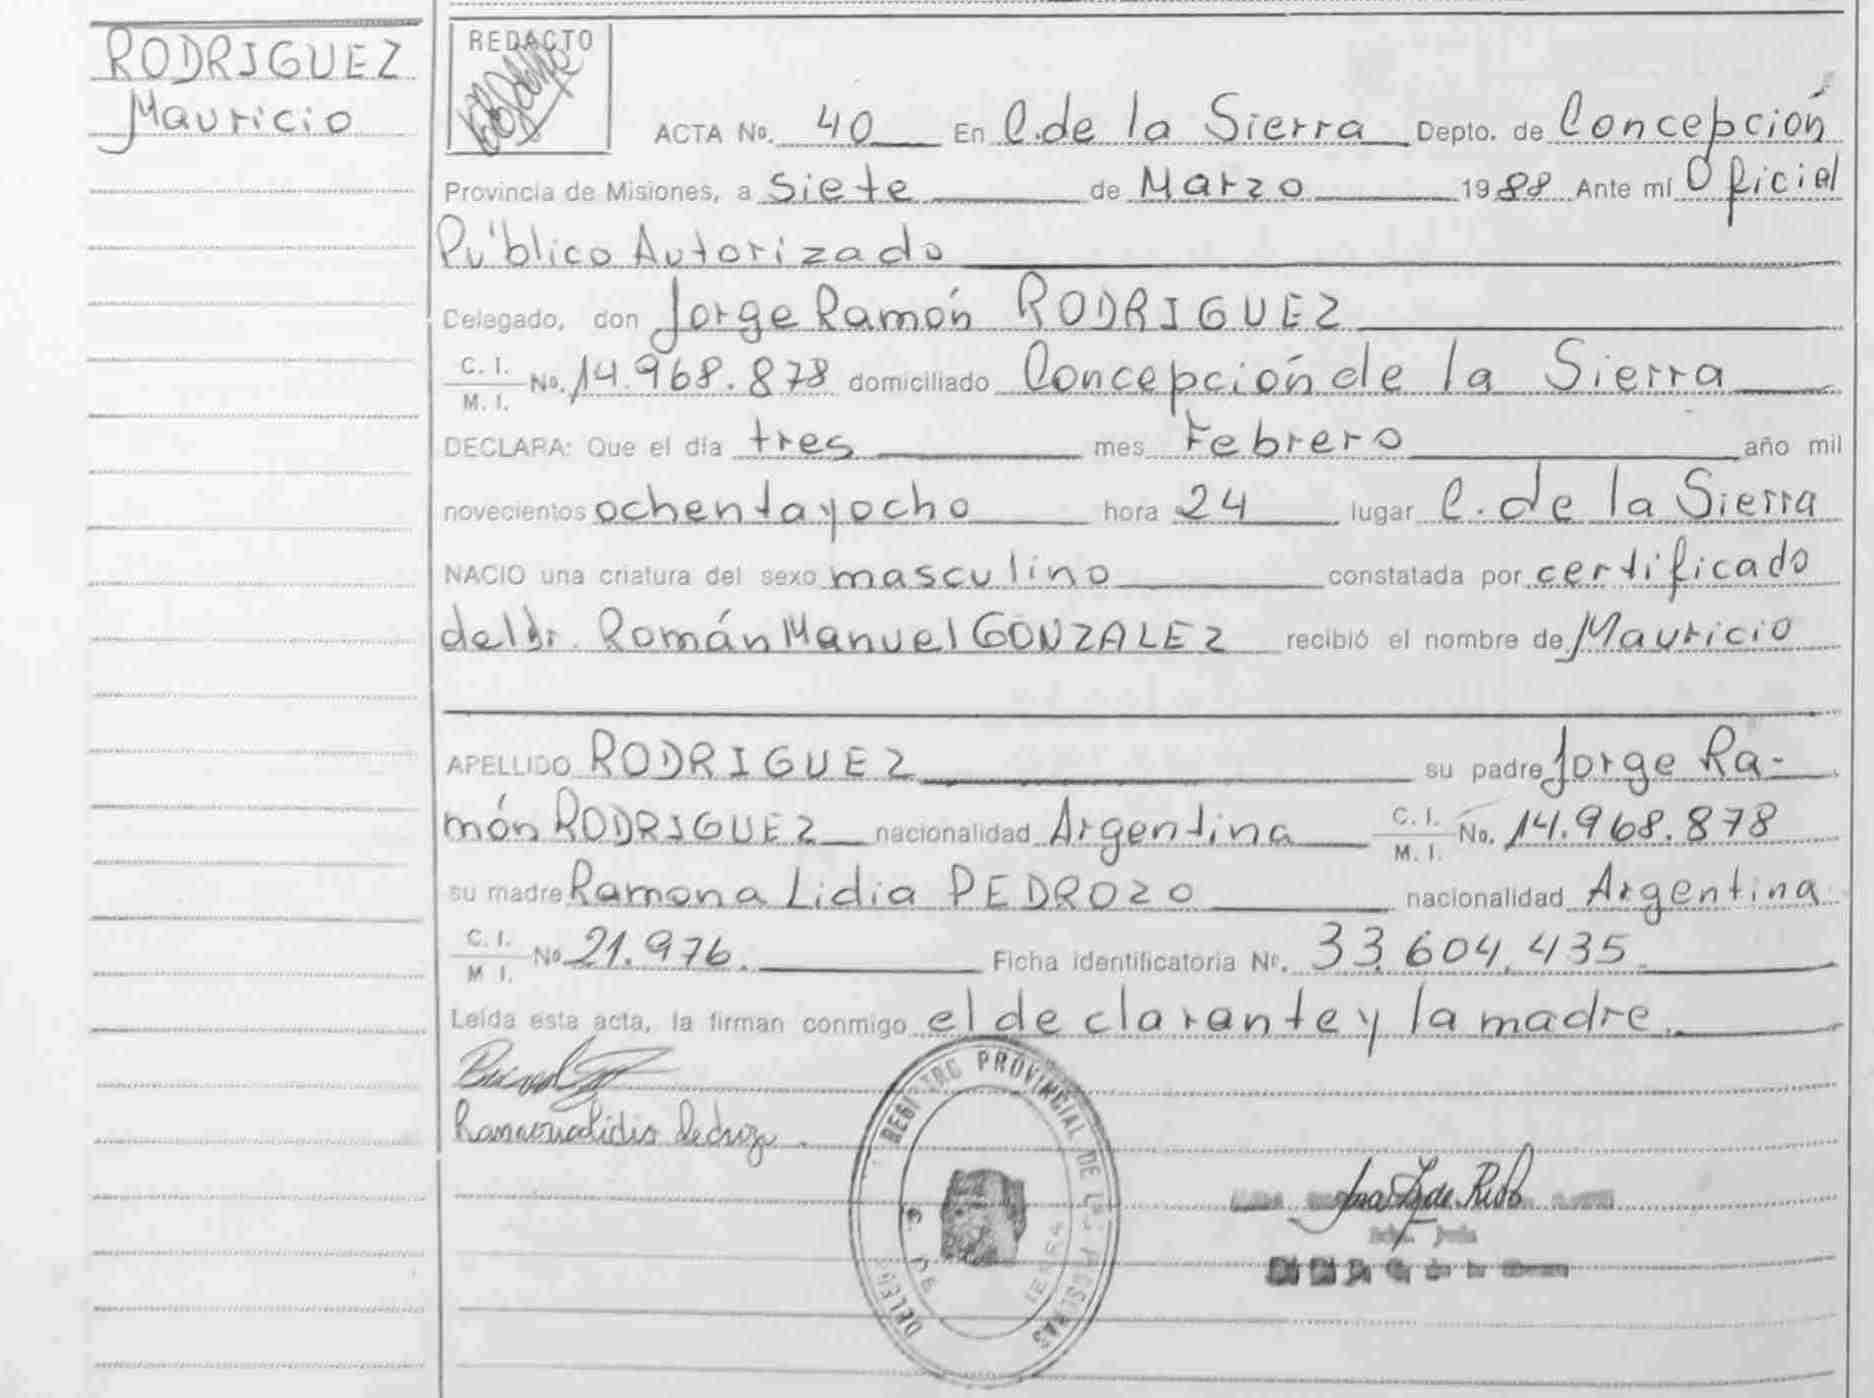 RODRIGUEZ
Mauricio
REDACTO
ACTA No. 40 En C. de la Sierra Depto. de Concepción
Provincia de Misiones, a Siete de Marzo 1988 Ante mí Oficial
Público Autorizado
Delegado, don Jorge Ramón RODRIGUEZ
C. I. M. I. No. 14.968.878 domiciliado Concepción de la Sierra
DECLARA: Que el día tres mes Febrero año mil
novecientos ochenta y ocho hora 24 lugar C. de la Sierra
NACIO una criatura del sexo masculino constatada por certificado
del Dr. Román Manuel GONZALEZ recibió el nombre de Mauricio
APELLIDO RODRIGUEZ su padre Jorge Ra-
món RODRIGUEZ nacionalidad Argentina C. I. M. I. No. 14.968.878
su madre Ramona Lidia PEDROZO nacionalidad Argentina
C. I. M. I. No 21.976. Ficha identificatoria Nº. 33.604.435.
Leída esta acta, la firman conmigo el declarante y la madre.
Ramona Lidia Pedrozo.
REGISTRO PROVINCIAL DE LAS PERSONAS